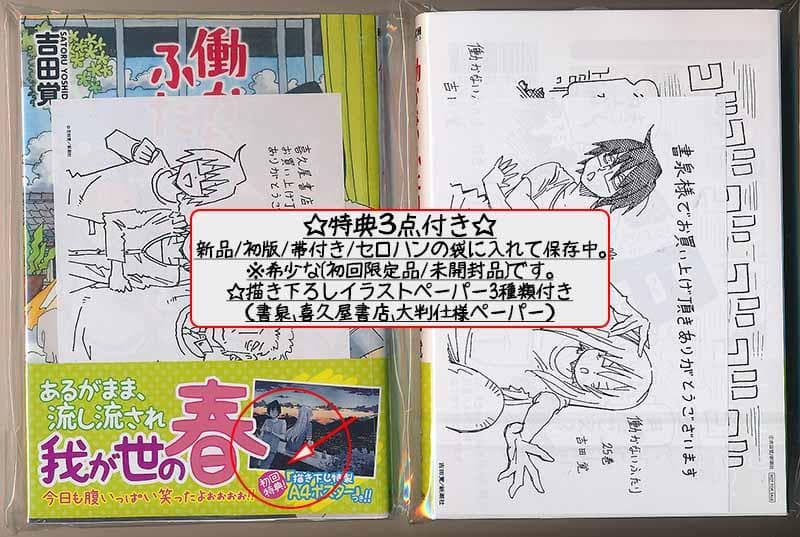 SATORU YOSHID
吉田覚
働かな
ふた
©吉田覚/新潮社
喜久屋書店
お買い上げ
ありがとうござ
☆特典3点付き☆
新品/初版/帯付き/セロハンの袋に入れて保存中。
※希少な(初回限定品/未開封品)です。
☆描き下ろしイラストペーパー3種類付き
(書泉,喜久屋書店,大判仕様ペーパー)
あるがまま、
流し流され
我が世の春
今日も腹いっぱい笑ったよぉぉぉぉ!!
初回特典!
「描き下し特製
A4ポスター」つき!!
働かないふ
吉
ゴゴゴゴゴゴゴ
書泉様でお買い上げ頂きありがとうございます
働かないふたり
25巻
吉田覚
吉田覚/新潮社